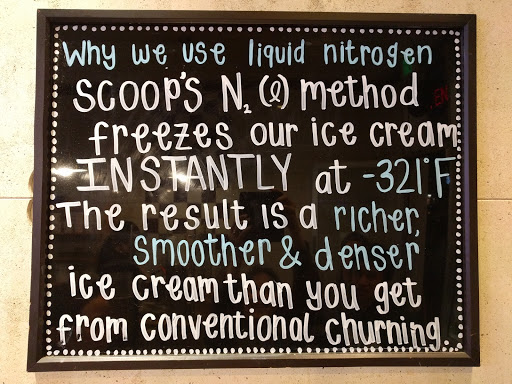 Why we use liquid nitrogen
SCOOP'S N₂ (l) method
freezes our ice cream
INSTANTLY at -321°F
The result is a richer,
smoother & denser
ice cream than you get
from conventional churning..